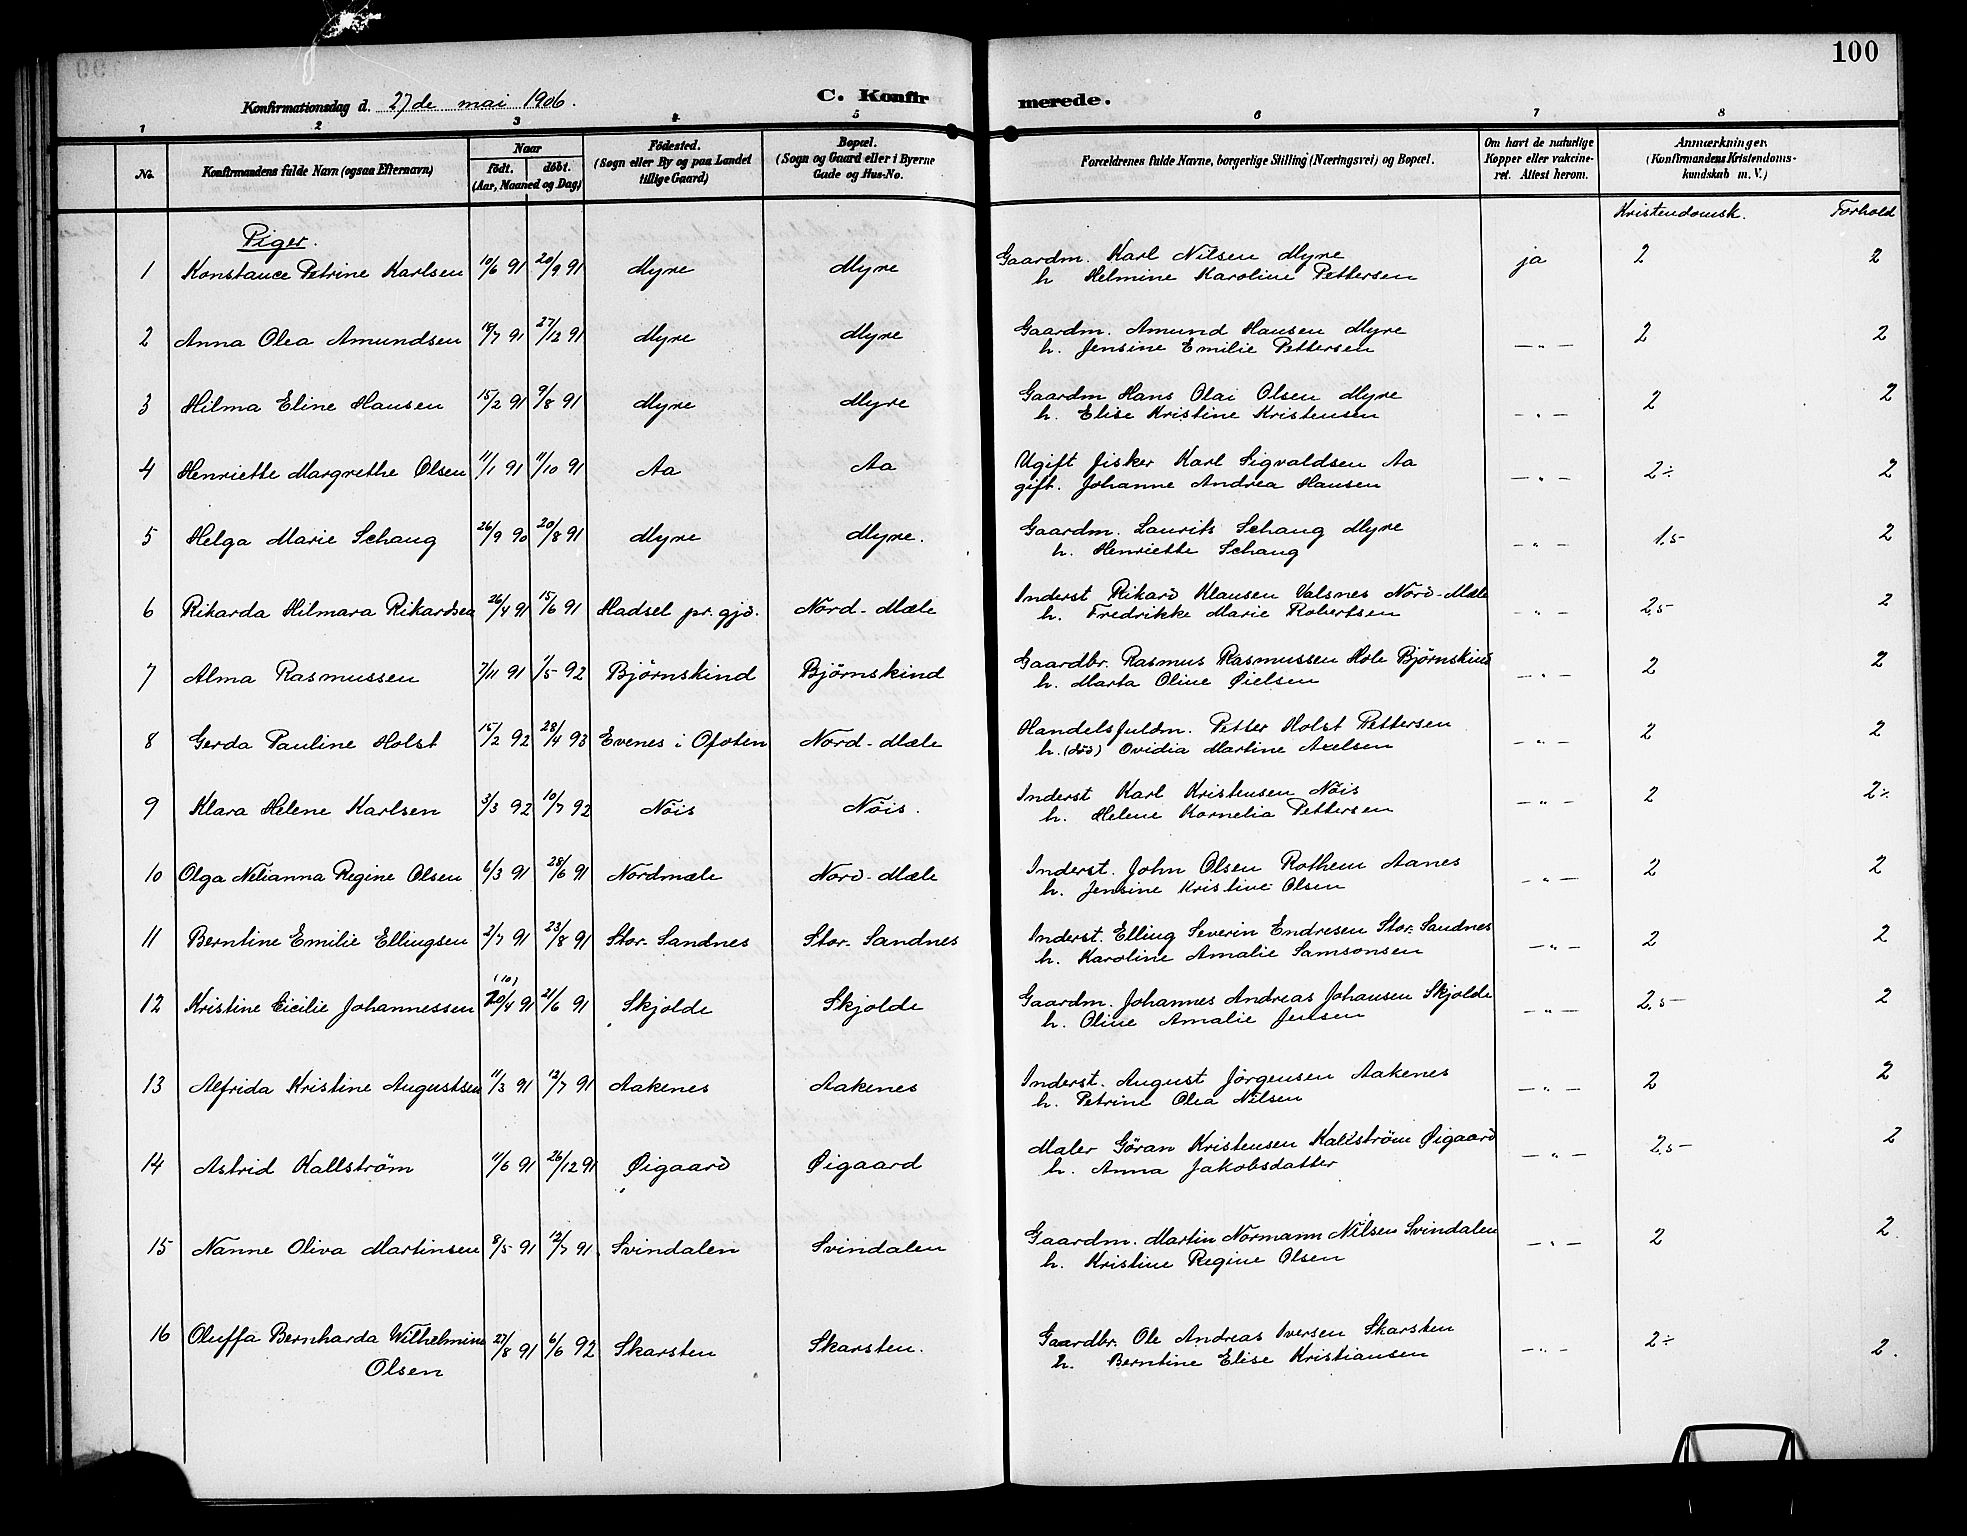 100
Konfirmationsdag d. 27de mai 1906.
C. Konfir merede.
1 2 3 4 5 6 7 8
No.
Konfirmandens fulde Navn (ogsaa Efternavn)
Naar
födt. döbt.
(Aar, Maaned og Dag)
Födested.
(Sogn eller By og paa Landet
tillige Gaard)
Bopæl.
(Sogn og Gaard eller i Byerne
Gade og Hus-No.
Forældrenes fulde Navne, borgerlige Stilling (Næringsvei) og Bopæl.
Om havt de naturlige
Kopper eller vakcine-
ret. Attest herom.
Anmærkninger.
(Konfirmandens Kristendoms-
kundskab m. V.)
Kristendomsk. Forhold
Piger.
1 Konstance Petrine Karlsen 10/6 91 20/9 91 Myre Myre Gaardm. Karl Nilsen Myre ja 2 2
h Helmine Karoline Pettersen
2 Anna Olea Amundsen 18/7 91 27/12 91 Myre Myre Gaardm. Amund Hansen Myre — „ — 2 2
h. Jensine Emilie Pettersen
3 Hilma Eline Hansen 15/2 91 9/8 91 Myre Myre Gaardm Hans Olai Olsen Myre — „ — 2 2
h. Elise Kristine Kristensen
4 Henriette Margrethe Olsen 11/1 91 11/10 91 Aa Aa Ugift fisker Karl Sigvaldsen Aa — „ — 2÷ 2
gift. Johanne Andrea Hansen
5 Helga Marie Schang 26/9 90 20/8 91 Myre Myre. Gaardm. Laurits Schang Myre — „ — 1.5 2
h. Henriette Schang
6 Rikarda Hilmara Rikardsen 26/4 91 15/6 91 Hadsel pr.gjd. Nord-Mæle Inderst Rikard Klausen Valsnes Nord-Mæle — „ — 2.5 2
h. Fredrikke Marie Robertsen
7 Alma Rasmussen 7/11 91 1/5 92 Bjørnskind Bjørnskind Gaardbr. Rasmus Rasmussen Hole Bjørnskind — „ — 2 2
h. Marta Oline Øielsen
8 Gerda Pauline Holst 15/2 92 28/4 93 Evenes i Ofoten Nord-Mæle Handelsfuldm. Petter Holst Pettersen — „ — 2 2
h. (død) Ovidia Martine Axelsen
9 Klara Helene Karlsen 3/3 92 10/7 92 Nöis Nöis. Inderst Karl Kristensen Nöis — „ — 2 2÷
h. Helene Kornelia Pettersen
10 Olga Nelianna Regine Olsen 6/3 91 28/6 91 Nordmæle Nord-Mæle Inderst. John Olsen Rothem Aanes — „ — 2 2
h. Jensine Kristine Olsen
11 Berntine Emilie Ellingsen 2/7 91 23/8 91 Stor-Sandnes Stor-Sandnes Inderst. Elling Severin Endresen Stor-Sandnes — „ — 2 2
h. Karoline Amalie Samsonsen
(10)
12 Kristine Cicilie Johannessen 20/4 91 21/6 91 Skjolde Skjolde Gaardm. Johannes Andreas Johansen Skjolde — „ — 2.5 2
h. Oline Amalie Jensen
13 Alfrida Kristine Augustsen 11/3 91 12/7 91 Aakenes Aakenes Inderst. August Jörgensen Aakenes — „ — 2 2
h. Petrine Olea Nilsen
14 Astrid Kallström 11/6 91 26/12 91 Øigaard Øigaard Maler Göran Kristensen Kallström Øigaard — „ — 2.5 2
h. Anna Jakobsdatter
15 Nanne Oliva Martinsen 8/5 91 12/7 91 Svindalen Svindalen Gaardm. Martin Normann Nilsen Svindalen — „ — 2 2.
h. Kristine Regine Olsen
16 Oluffa Bernharda Wilhelmine 27/8 91 6/6 92 Skarsten Skarsten. Gaardbr. Ole Andreas Iversen Skarsten — „ — 2÷ 2.
Olsen h. Berntine Elise Kristiansen